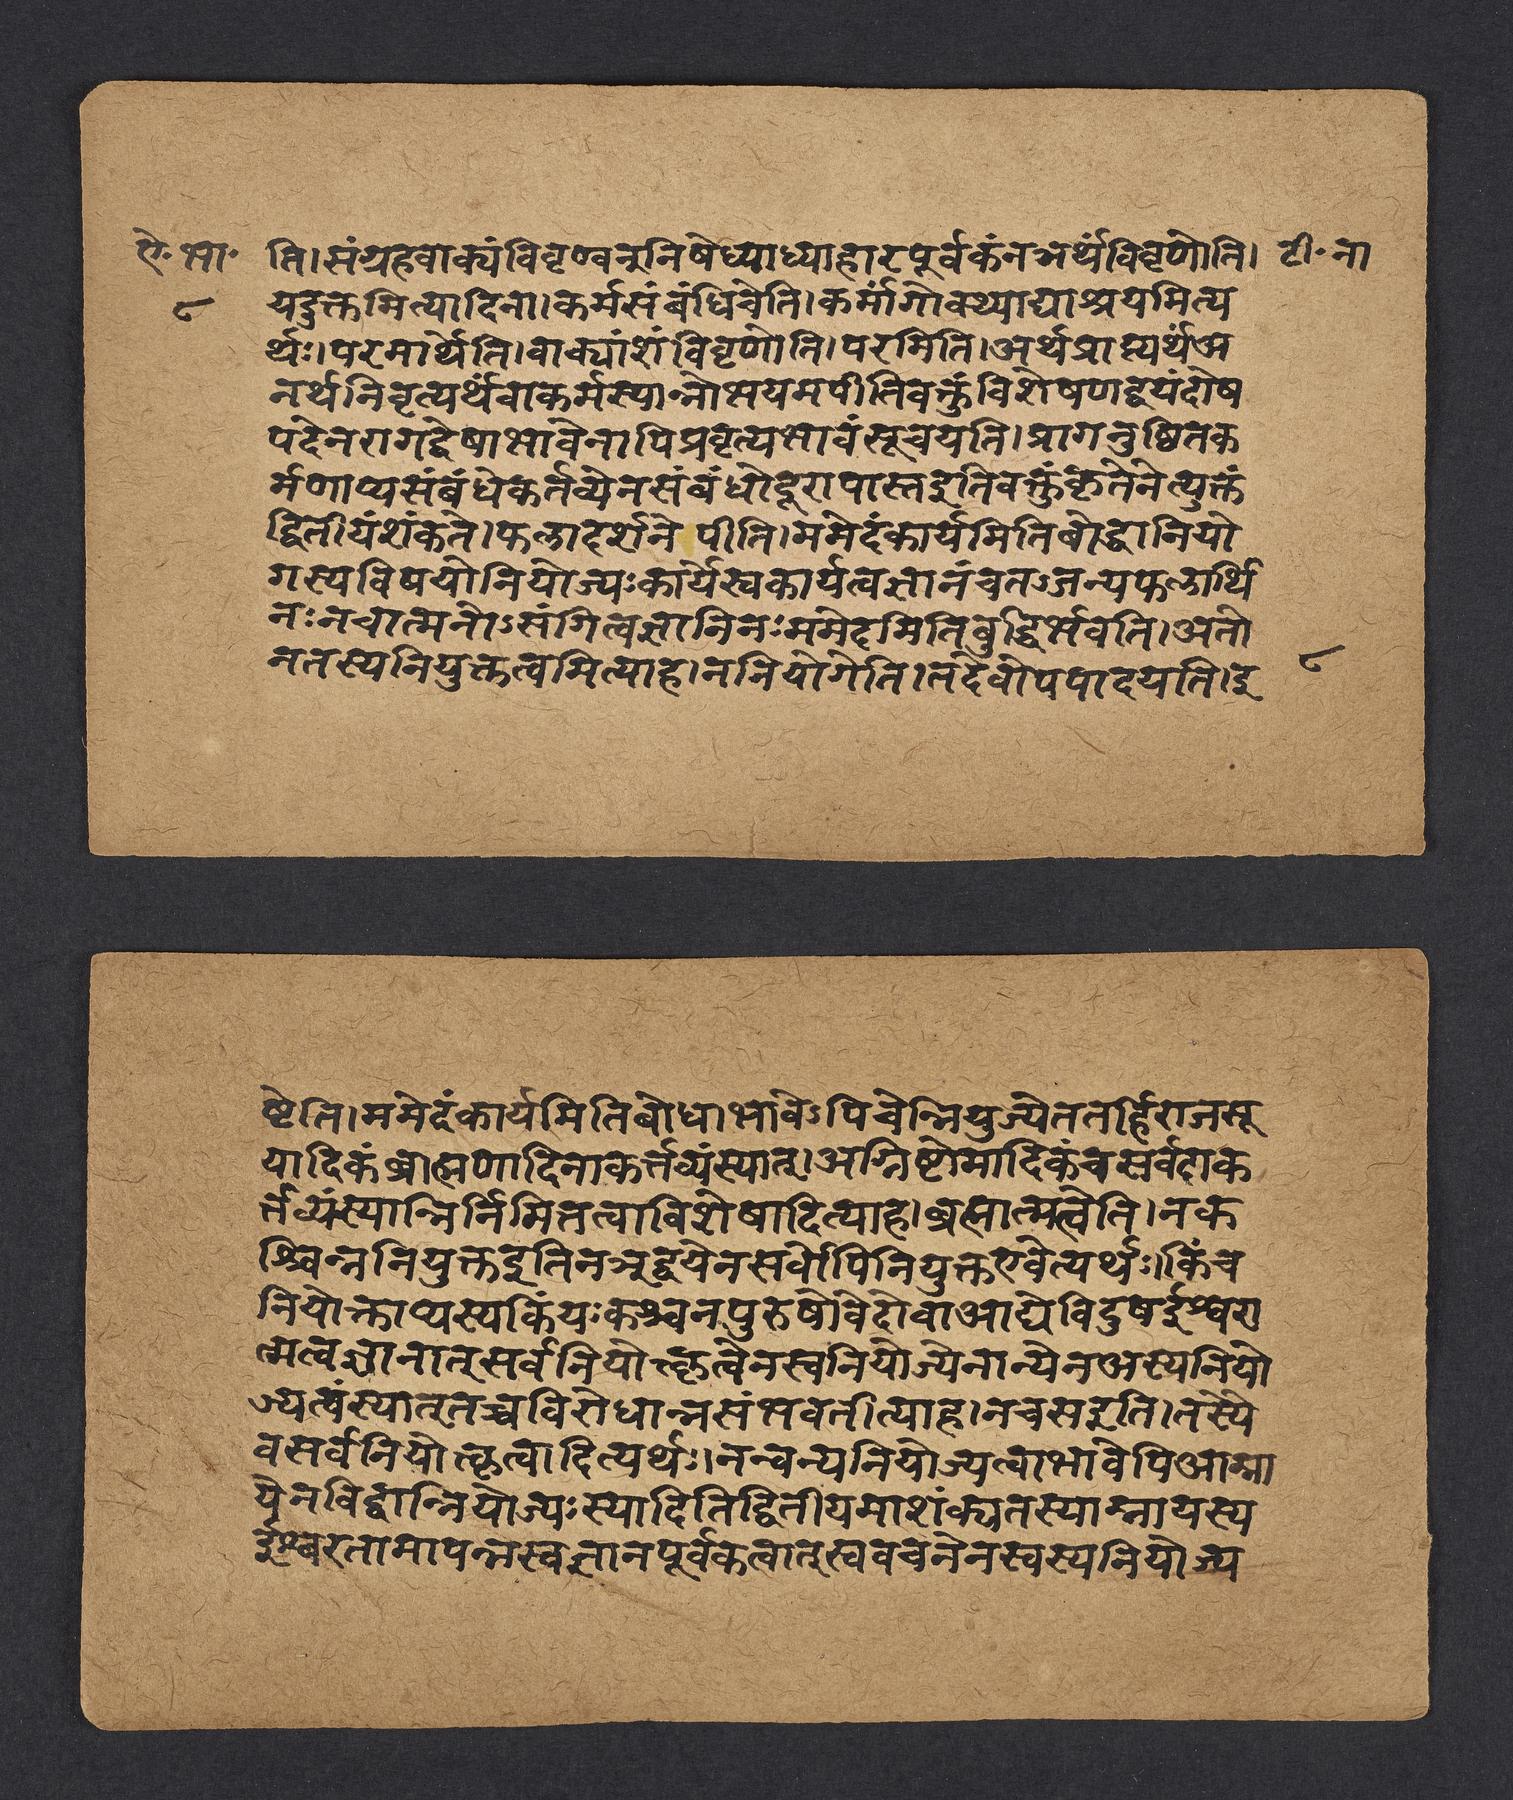 ऐ॰ भा॰ ति।संग्रहवाक्यंविवृण्वनुनिषेध्याध्याहारपूर्वकंनञर्थंविवृणोति। टी॰ ना
८ यदुक्तमित्यादिना।कर्मसंबंधिचेति।कर्मांगोक्थ्याद्याश्रयमित्य
र्थः।परमार्थेति।वाक्यांशंविवृणोति।परमिति।अर्थप्राप्त्यर्थंअ
नर्थनिवृत्यर्थंवाकर्मस्यान्नोभयमपीतिवक्तुंविशेषणद्वयंदोष
पदेनरागद्वेषाभावेनापिप्रवृत्यभावंसूचयति।प्रागनुष्ठितक
र्मणाप्यसंबंधेकर्तव्येनसंबंधोदूरापास्तइतिवक्तुंकृतेनेत्युक्तं
द्वितीयंशंकते।फलादर्शनेपीति।ममेदंकार्यमितिबोद्धानियो
गस्यविषयोनियोज्यःकार्येस्वकार्यत्वज्ञानंचतज्जन्यफलार्थि
नःनचात्मनोऽसंगित्वज्ञानिनःममेदमितिबुद्धिर्भवति।अतो
नतस्यनियुक्तत्वमित्याह।ननियोगेति।तदेवोपपादयति।इ ८
ष्टेति।ममेदंकार्यमितिबोधाभावेऽपिचेन्नियुज्येततर्हिराजसू
यादिकंब्राह्मणादिनाकर्त्तव्यंस्यात्।अग्निष्टोमादिकंचसर्वदाक
र्त्तव्यंस्यान्निर्निमित्तत्वाविशेषादित्याह।ब्रह्मात्मत्वेति।नक
श्चिन्ननियुक्तइतिनञ्द्वयेनसर्वोपिनियुक्तएवेत्यर्थः।किंच
नियोक्ताप्यस्यकिंयःकश्चनपुरुषोवेदोवाआद्येविदुषईश्वरा
त्मत्वज्ञानात्सर्वनियोक्तृत्वेनस्वनियोज्येनान्येनअस्यनियो
ज्यत्वंस्यात्तच्चविरोधान्नसंभवतीत्याह।नचसइति।तस्यै
वसर्वनियोक्तृत्वादित्यर्थः।नन्वन्यनियोज्यत्वाभावेपिआम्ना
येनविद्वान्नियोज्यःस्यादितिद्वितीयमाशंक्यतस्याम्नायस्य
ईश्वरतामापन्नस्वज्ञानपूर्वकत्वात्स्ववचनेनस्वस्यनियोज्य